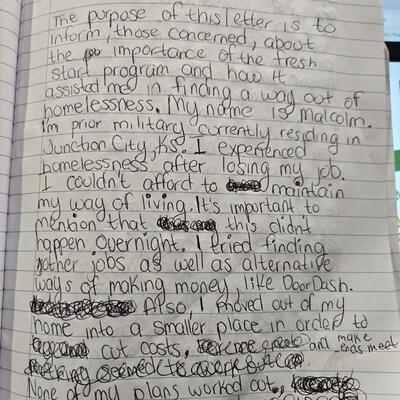 The purpose of this letter is to
inform, those concerned, about
the importance of the fresh
start program and how it
assisted me in finding a way out of
homelessness. My name is Malcolm.
I'm prior military currently residing in
Junction City, KS. I experienced
homelessness after losing my job.
I couldn't afford to maintain
my way of living. It's important to
mention that this didn't
happen overnight. I tried finding
other jobs as well as alternative
ways of making money, like DoorDash.
Also, I moved out of my
home into a smaller place in order to
cut costs, and make
ends meet
None of my plans worked out,